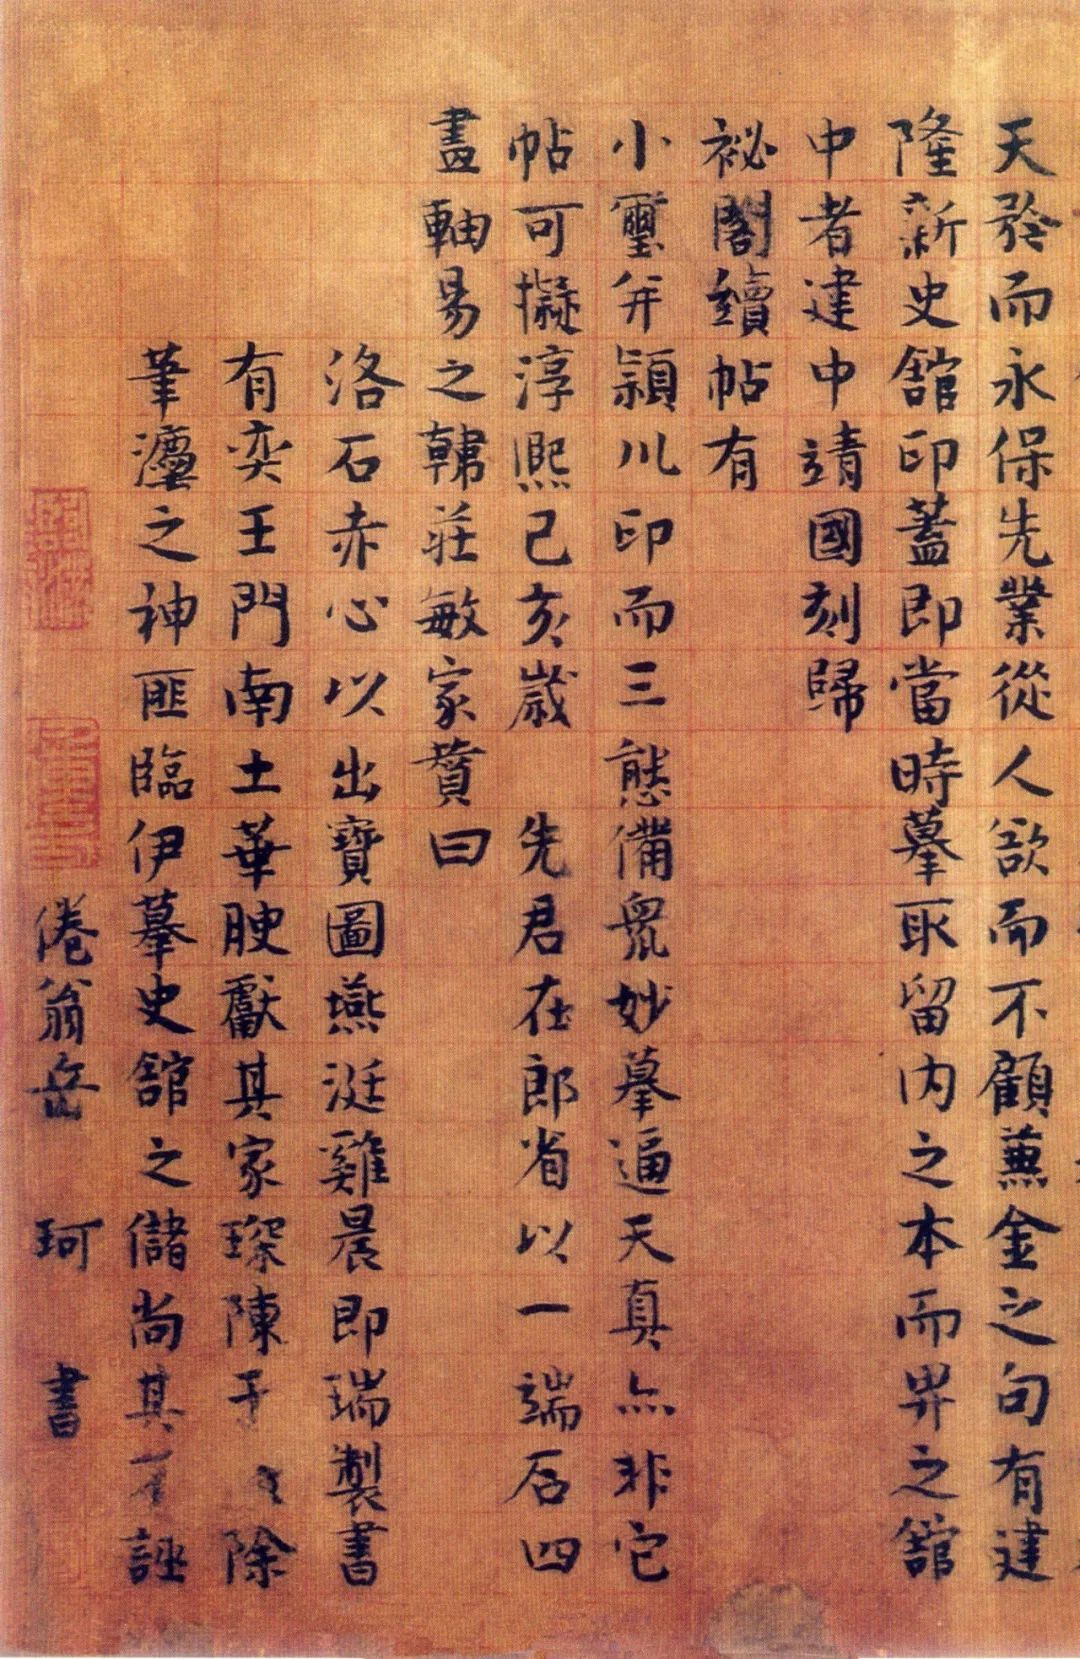 天發而永保先業從人欲而不顧兼金之句有建
隆新史館印蓋即當時摹取留內之本而畀之館
中者建中靖國刻歸
祕閣續帖有
小璽并潁川印而三態備衆妙摹逼天真亦非它
帖可擬淳熙己亥歲 先君在郎省以一端石四
畫軸易之韓莊敏家贊曰
洛石赤心以出寶圖燕涎雞晨即瑞製書
有奕王門南土華腴獻其家琛陳于 除
筆瀍之神匪臨伊摹史館之儲尚其 誣
倦翁岳 珂 書